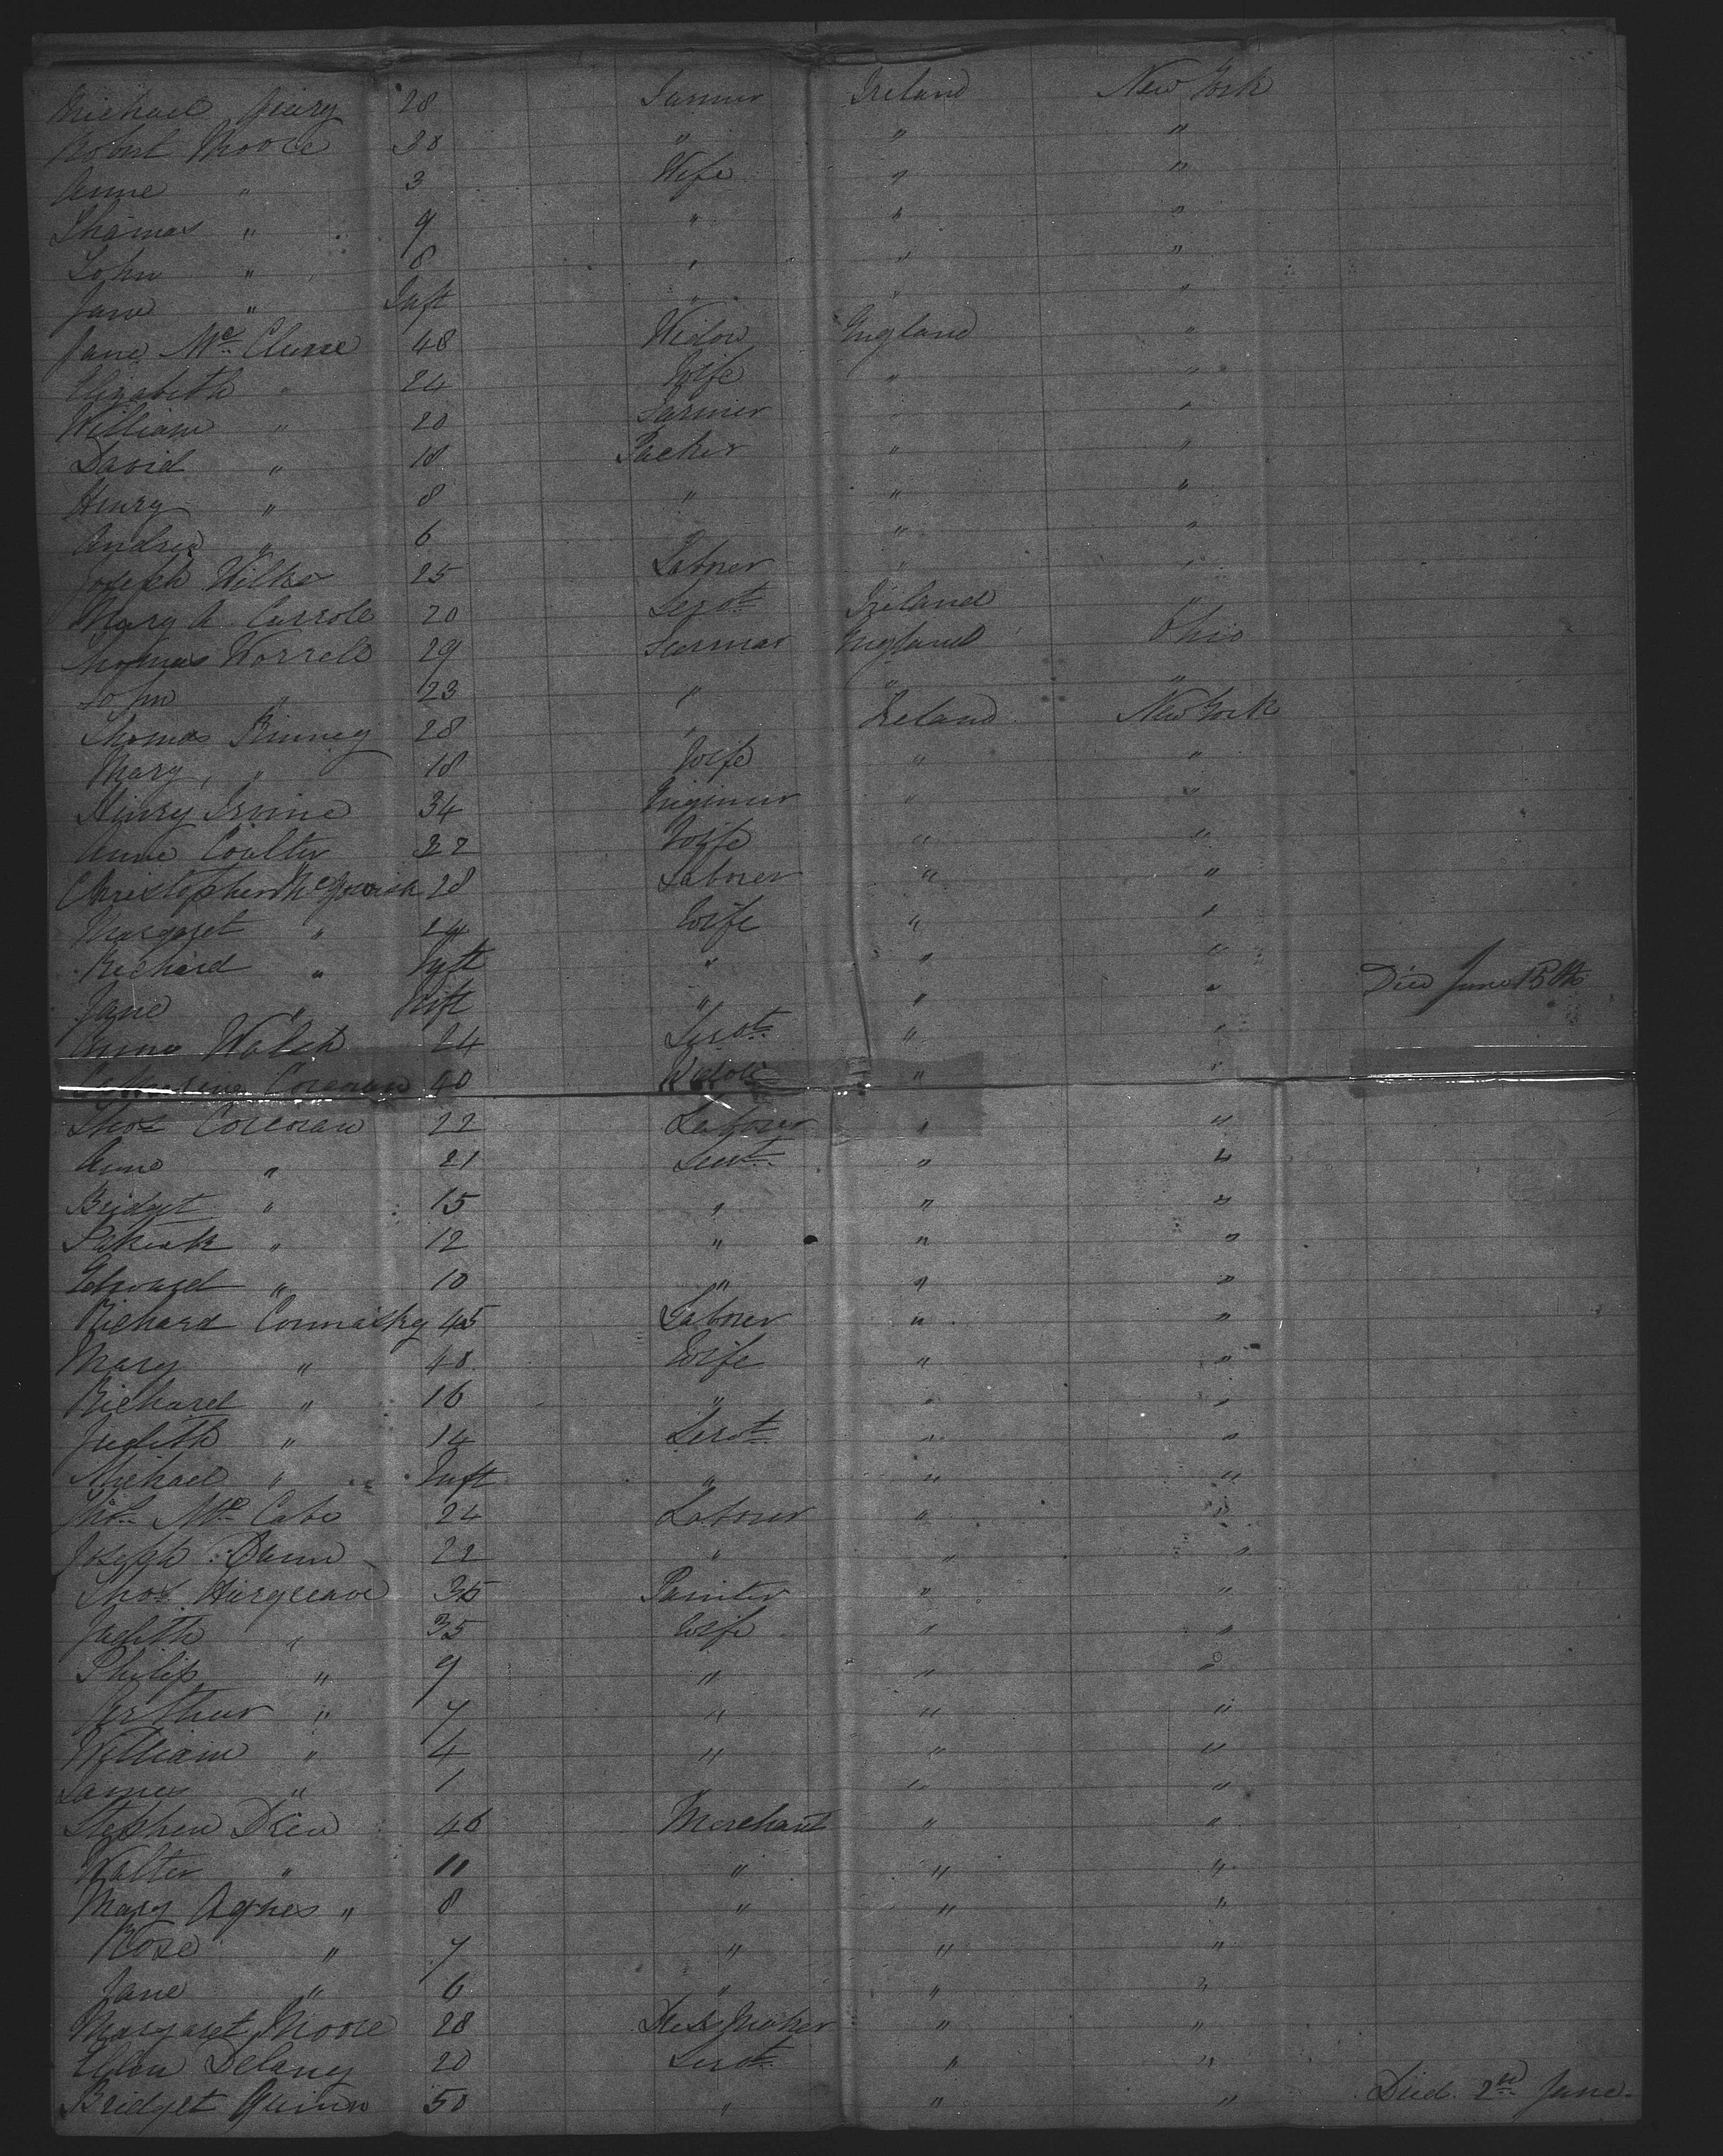 Michael Geary 28 Farmer Ireland New York
Robert Moore 30 " " "
Anne " 3 Wife " "
Thomas " 9 " " "
John " 8 " " "
Jane " Inft " " "
Jane Mc Clune 48 Widow England "
Elizabeth " 24 Wife " "
William " 20 Farmer " "
David " 18 Packer " "
Henry " 8 " " "
Andrew " 6 " "
Joseph Wilks 25 Laborer " "
Mary A Carroll 20 Servt Ireland "
Thomas Worrell 29 Farmer England Ohio
John " 23 " " "
Thomas Kinney 28 " Ireland New York
Mary " 18 Wife " "
Henry Irvine 34 Engineer " "
Anne Coulter 32 Wife " "
Christopher Mc 28 Laborer " "
Margaret " 24 Wife " "
Richard " Inft " " "
Jane " Inft " " " Died June 15th
Anne Walsh 24 Servt " "
Catherine Corcoran 40 Widow " "
Thos Corcoran 22 Laborer " "
Anne " 21 Servt " "
Bridget " 15 " " "
Patrick " 12 " " "
Edward " 10 " " "
Richard 45 Laborer " "
Mary " 40 Wife " "
Richard " 16 " " "
Judith " 14 Servt " "
Michael " Inft " " "
Mc Cabe 24 Laborer " "
Joseph Dunn 22 " " "
Thos Hargreave 35 Painter " "
Judith " 35 Wife " "
Philip " 9 " " "
Arthur " 7 " " "
William " 4 " " "
James " 1 " " "
Stephen Drew 46 Merchant " "
Walter " 11 " " "
Mary Agnes " 8 " " "
Rose " 7 " " "
Jane " 6 " " "
Margaret Moore 28 Dress Maker " "
Ellen Delany 20 Servt " "
Bridget Quinn 50 " " " Died 2nd June